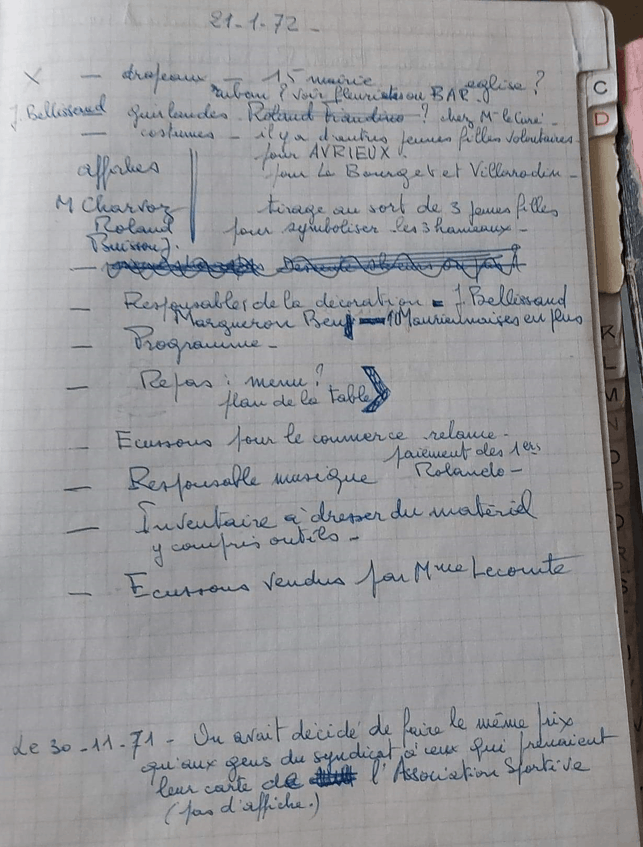 21-1-72-
X — drapeaux — 15 mairie église ?
ruban ? voir fleuriste ou BAR.
J. Bellissand guirlandes Roland ? chez Mr le Curé.
— costumes - il y a d'autres jeunes filles volontaires
pour AVRIEUX.
affiches pour Le Bourget et Villarodin -
M Charvoz tirage au sort de 3 jeunes filles
Roland pour symboliser les 3 hameaux -
Buisson J.
—
— Responsables de la décoration = J. Bellissand
Margueron Benj — 10 Mauriennaises en plus
— Programme -
— Repas : menu ?
plan de la table
— Ecussons pour le commerce relance -
paiement des 1ers
— Responsable musique Rolando -
— Inventaire à dresser du matériel
y compris outils -
— Ecussons vendus par Mme Lecomte
Le 30-11-71 - On avait décidé de faire le même prix
qu'aux gens du syndicat à ceux qui prenaient
leur carte de l'Association Sportive
(pas d'affiche.)
C
D
K
L
M
N
O
P